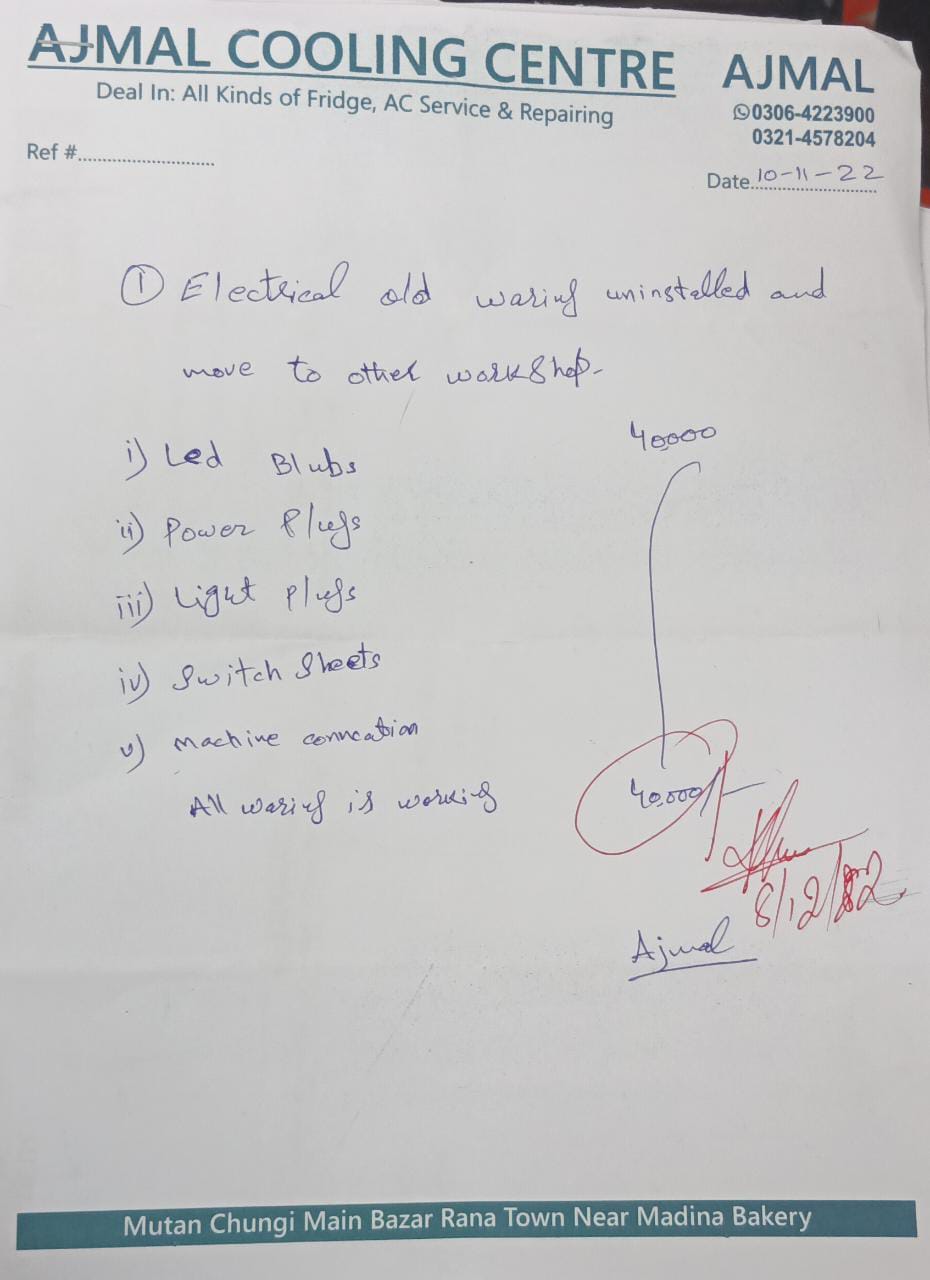 AJMAL COOLING CENTRE
Deal In: All Kinds of Fridge, AC Service & Repairing
AJMAL
0306-4223900
0321-4578204
Ref #..............................
Date 10-11-22
① Electrical old waring uninstalled and
move to other workshop-
40000
i) Led Blubs
ii) Power Plugs
iii) Light plugs
iv) Switch Sheets
v) Machine conncation
40,000/-
All waring is working
8/12/22
Ajmal
Mutan Chungi Main Bazar Rana Town Near Madina Bakery